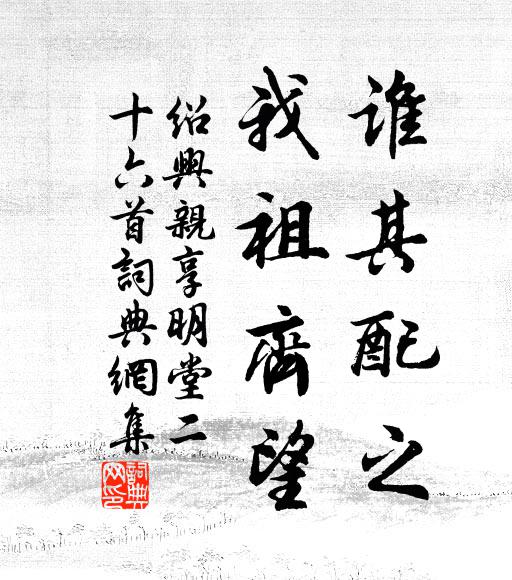 谁其配之
我祖齊望
绍興親享明堂二
十六首詞典網集
詞典网印